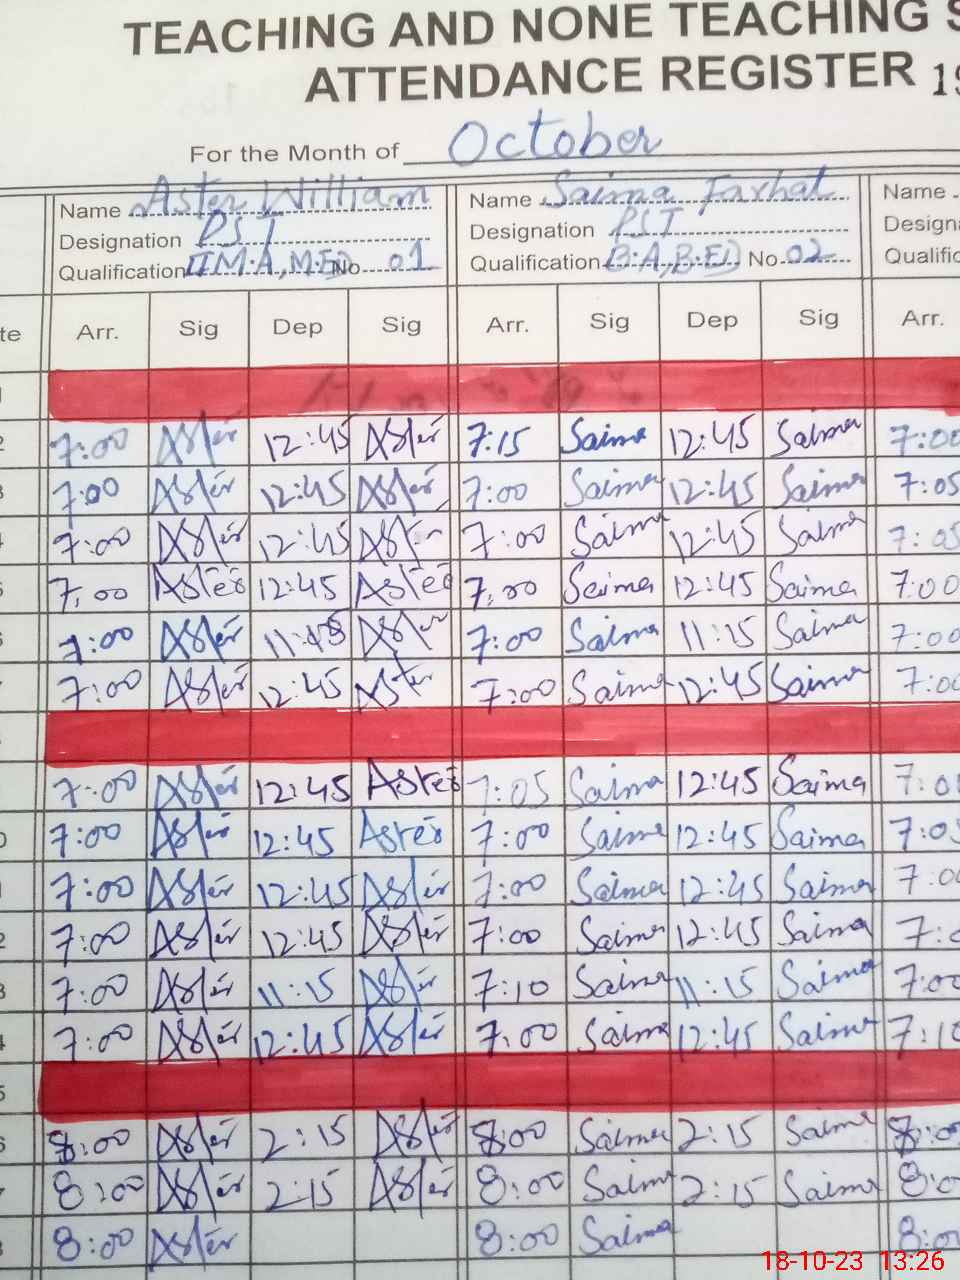 TEACHING AND NONE TEACHING S
ATTENDANCE REGISTER 19
For the Month of October
Name Aster William Name Saima Farhat Name
Designation PST Designation PST Design
Qualification M.A, M.ED No 01 Qualification B.A, B.ED No 02 Qualific
te Arr. Sig Dep Sig Arr. Sig Dep Sig Arr.
1
2 7:00 Aster 12:45 Aster 7:15 Saima 12:45 Saima 7:00
3 7:00 Aster 12:45 Aster 7:00 Saima 12:45 Saima 7:05
4 7:00 Aster 12:45 Aster 7:00 Saima 12:45 Saima 7:05
5 7:00 Aster 12:45 Aster 7:00 Saima 12:45 Saima 7:00
6 7:00 Aster Aster 7:00 Saima 11:15 Saima 7:00
7 7:00 Aster 12:45 Aster 7:00 Saima 12:45 Saima 7:00
7:00 Aster 12:45 Aster 7:05 Saima 12:45 Saima 7:0
0 7:00 Aster 12:45 Aster 7:00 Saima 12:45 Saima 7:05
1 7:00 Aster 12:45 Aster 7:00 Saima 12:45 Saima 7:00
2 7:00 Aster 12:45 Aster 7:00 Saima 12:45 Saima 7:0
3 7:00 Aster 11:15 Aster 7:10 Saima 11:15 Saima 7:00
4 7:00 Aster 12:45 Aster 7:00 Saima 12:45 Saima 7:10
5
6 8:00 Aster 2:15 Aster 8:00 Saima 2:15 Saima 8:00
7 8:00 Aster 2:15 Aster 8:00 Saima 2:15 Saima 8:0
8 8:00 Aster 8:00 Saima 8:00
18-10-23 13:26